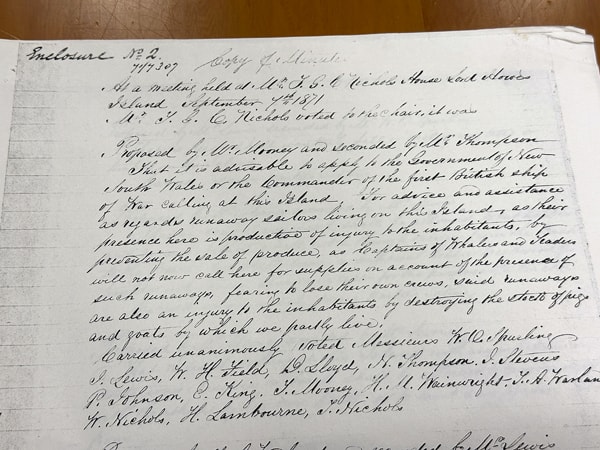 Enclosure No 2.
71/7307
Copy of Minute
At a meeting held at Mr. T. G. C Nichols House Lord Howes
Island September 7th 1871
Mr. T. G. C Nichols voted to the chair, it was
Proposed by Mr. Mooney and seconded by Mr. Thompson
That it is advisable to apply to the Government of New
South Wales or the Commander of the first British ship
of War calling at this Island. For advice and assistance
as regards runaway sailors living on this Island, as their
presence here is productive of injury to the inhabitants, by
preventing the sale of produce, as Captains of Whalers and Traders
will not now call here for supplies on account of the presence of
such runaways, fearing to lose their own crews, said runaways
are also an injury to the inhabitants by destroying the stock of pigs
and goats by which we partly live.
Carried unanimously voted Messieurs W. O. Spurling
J. Lewis, W. H. Field, D. Lloyd, N. Thompson, J. Stevens
P. Johnson, C. King. T. Mooney, H. U. Wainwright, T. H.
W. Nichols, H. Lambourne, T. Nichols
by Mr. Lewis